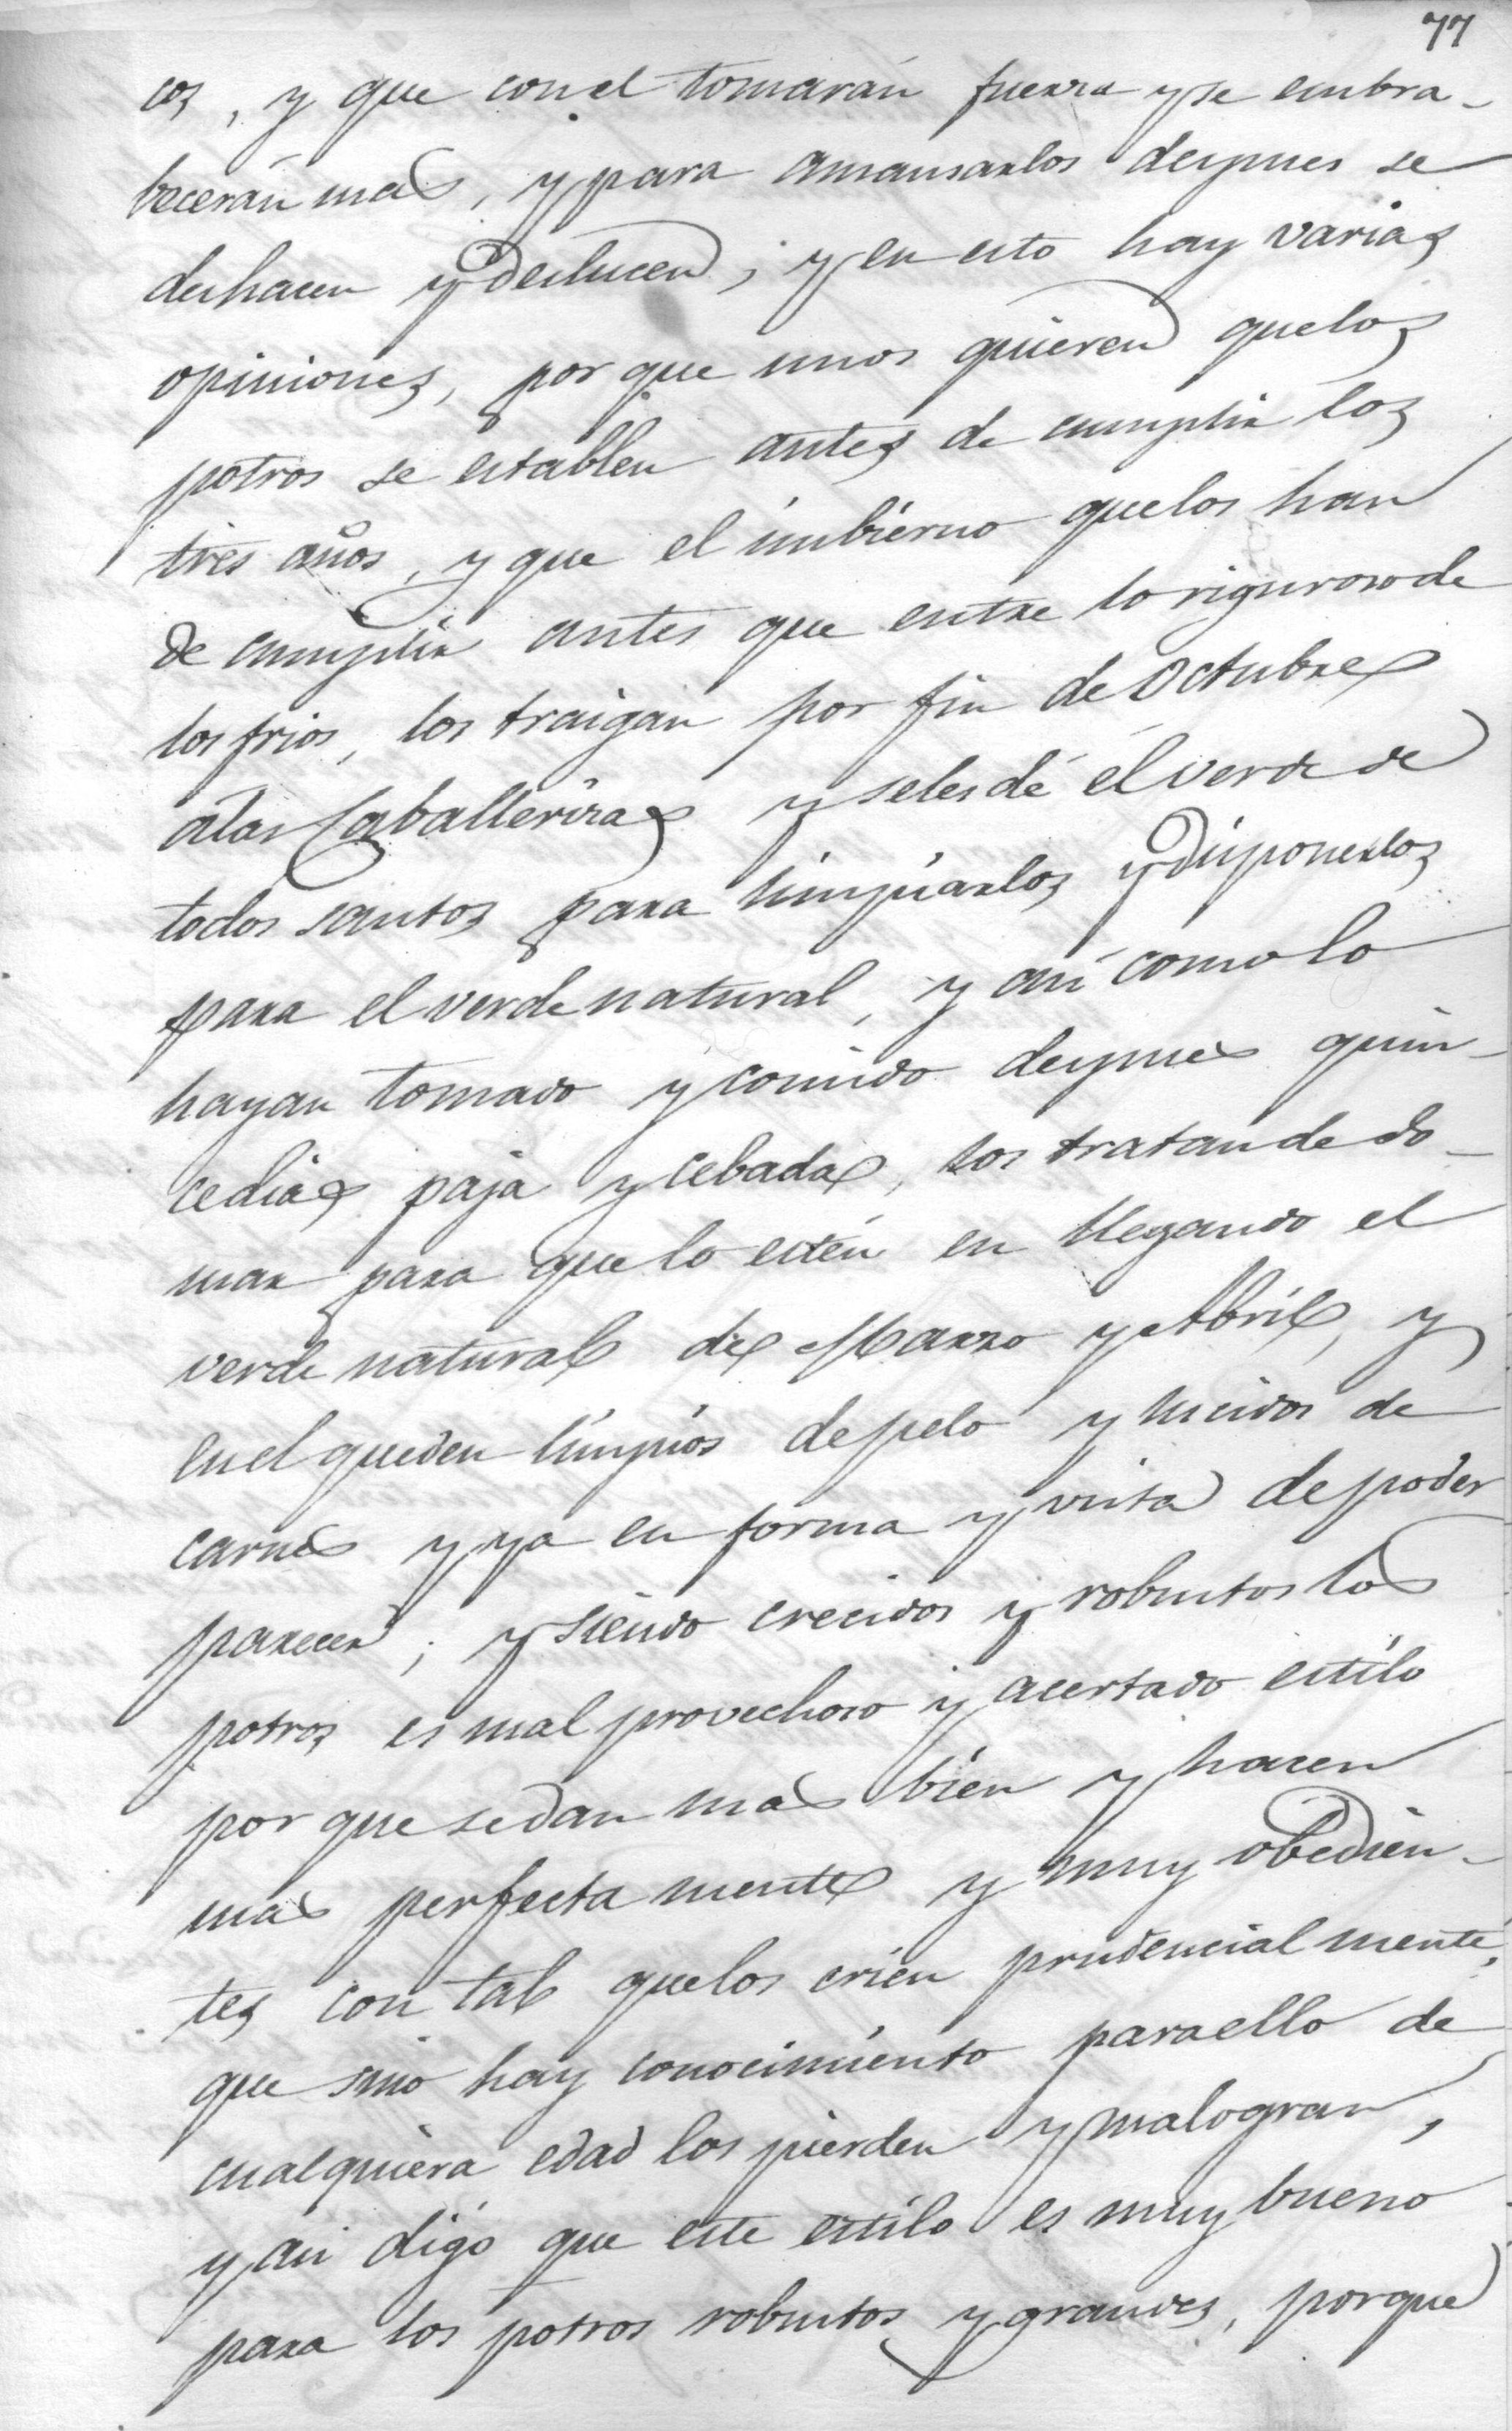 77
cos, y que con el tomarán fuerza y se embra-
becerán mas, y para amansarlos despues se
deshacen y deslucen; y en esto hay varias
opiniones, por que unos quieren quelos
potros se establen antes de cumplir los
tres años, y que el imbierno quelos han
de cumplir antes que entre lo riguroso de
los frios, los traigan por fin de Octubre
alas Caballerizas y selesdé el verde de
todos santos para limpiarlos y disponerlos
para el verde natural, y asi como lo
hayan tomado y comido despues quin-
cedias paja y cebada, los tratan de do-
mar para que lo estén en llegando el
verde natural de Marzo y Abril, y
en el queden limpios de pelo y lucidos de
carnes y ya en forma y vista de poder
parecer; y siendo crecidos y robustos los
potros es mal provechoso y acertado estilo
por que sedan mas bien y hacen
mas perfecta mente y muy obedien-
tes con tal quelos crien prudencial mente,
que sino hay conocimiento paraello de
cualquiera edad los pierden y malogran,
y asi digo que este estilo es muy bueno
para los potros robustos y grandes, porque